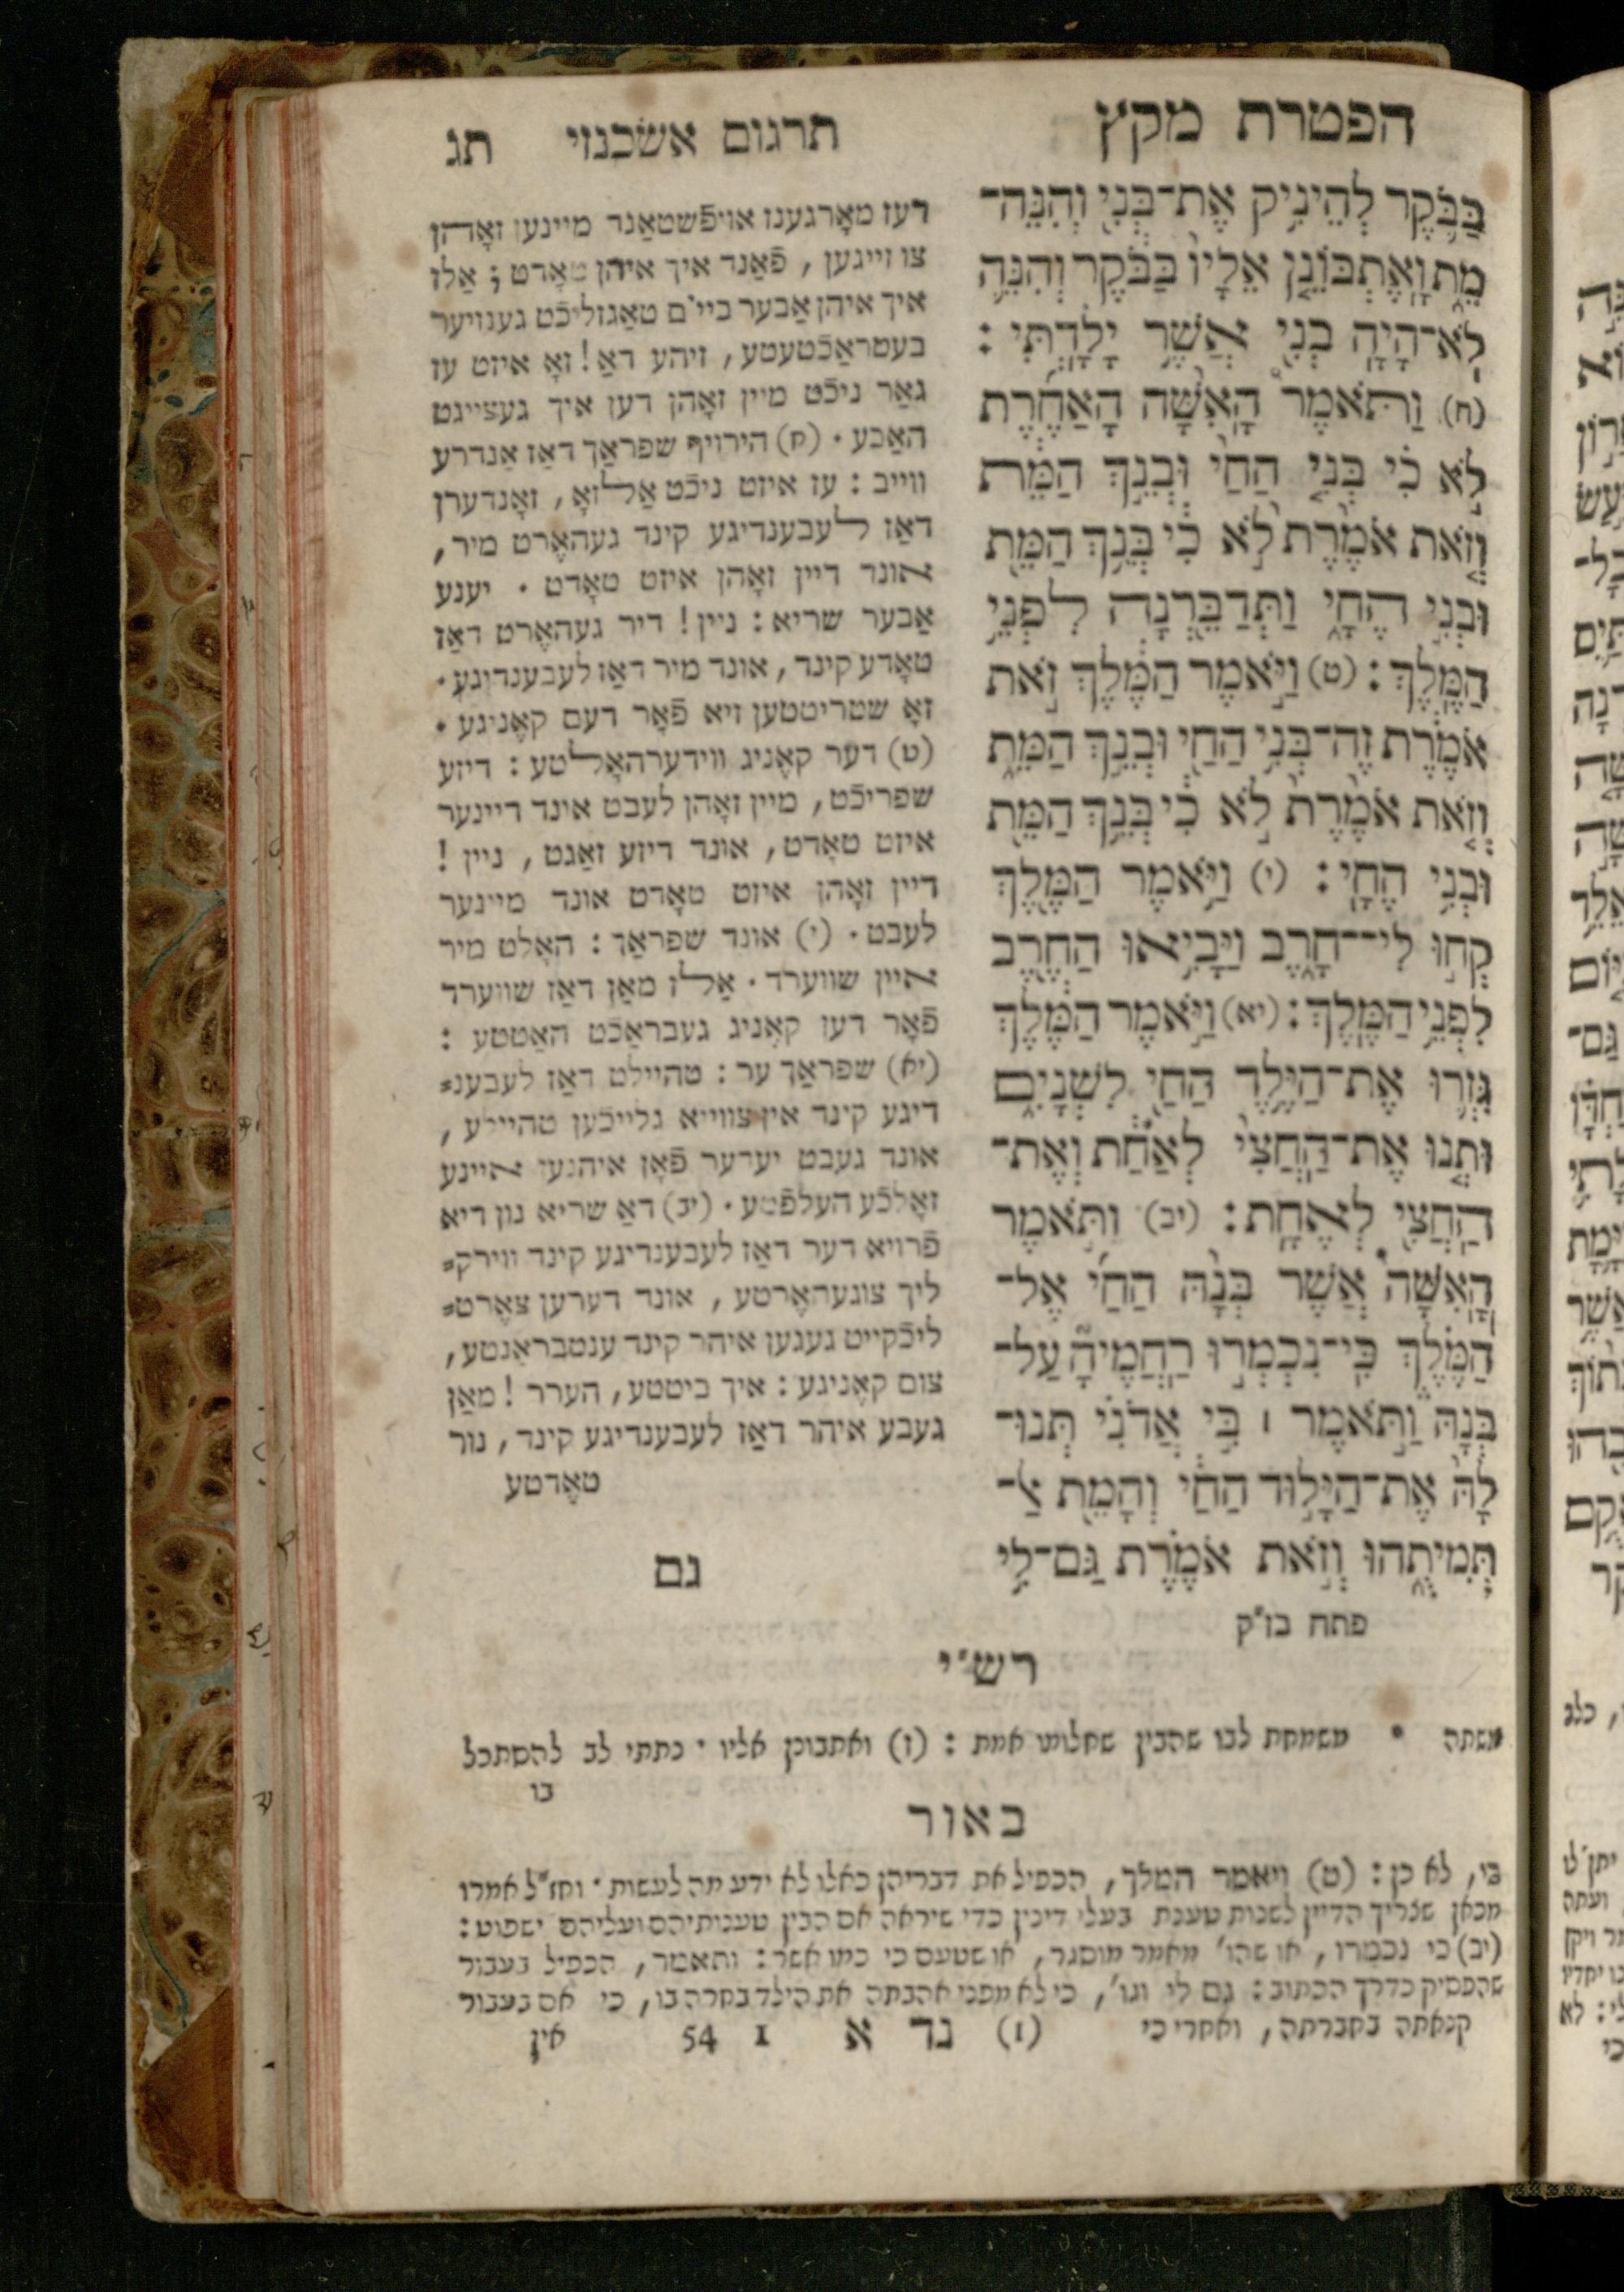 הפטרת מקץ
תרגום אשכנזי תג
בַּבֹּ֛קֶר לְהֵינִ֥יק אֶת־בְּנִ֖י וְהִנֵּה־
מֵ֑ת וָאֶתְבּוֹנֵ֤ן אֵלָיו֙ בַּבֹּ֔קֶר וְהִנֵּ֛ה
לֹא־הָיָ֥ה בְנִ֖י אֲשֶׁ֥ר יָלָֽדְתִּי :
(ח) וַתֹּאמֶר֩ הָאִשָּׁ֨ה הָאַחֶ֜רֶת
לֹ֣א כִ֗י בְּנִ֤י הַחַי֙ וּבְנֵ֣ךְ הַמֵּ֔ת
וְזֹ֤את אֹמֶ֙רֶת֙ לֹ֣א כִ֔י בְּנֵ֥ךְ הַמֵּ֖ת
וּבְנִ֣י הֶחָ֑י וַתְּדַבֵּ֖רְנָה לִפְנֵ֥י
הַמֶּֽלֶךְ : (ט) וַיֹּ֣אמֶר הַמֶּ֔לֶךְ זֹ֣את
אֹמֶ֔רֶת זֶה־בְּנִ֥י הַחַ֖י וּבְנֵ֣ךְ הַמֵּ֑ת
וְזֹ֤את אֹמֶ֙רֶת֙ לֹ֣א כִ֔י בְּנֵ֥ךְ הַמֵּ֖ת
וּבְנִ֥י הֶחָֽי : (י) וַיֹּ֥אמֶר הַמֶּ֖לֶךְ
קְח֣וּ לִי־חָ֑רֶב וַיָּבִ֥אוּ הַחֶ֖רֶב
לִפְנֵ֥י הַמֶּֽלֶךְ : (יא) וַיֹּ֣אמֶר הַמֶּ֔לֶךְ
גִּזְר֛וּ אֶת־הַיֶּ֥לֶד הַחַ֖י לִשְׁנָ֑יִם
וּתְנ֤וּ אֶֽת־הַחֲצִי֙ לְאַחַ֔ת וְאֶֽת־
הַחֲצִ֖י לְאֶחָֽת : (יב) וַתֹּ֣אמֶר
הָאִשָּׁה֩ אֲשֶׁר בְּנָ֨הּ הַחַ֜י אֶל־
הַמֶּ֗לֶךְ כִּֽי־נִכְמְר֣וּ רַחֲמֶיהָ֮ עַל־
בְּנָהּ֒ וַתֹּ֣אמֶר ׀ בִּ֣י אֲדֹנִ֗י תְּנוּ־
לָהּ֙ אֶת־הַיָּל֣וּד הַחַ֔י וְהָמֵ֖ת אַל־
תְּמִיתֻ֑הוּ וְזֹ֣את אֹמֶ֗רֶת גַּם־לִ֥י
פתח בז״ק
דעז מאָרגענז אויפֿשטאַנד מיינען זאָהן
צו זייגען , פֿאַנד איך איהן טאָדט ; אַלז
איך איהן אַבער ביי״ם טאַגזליכֿט גענויער
בעטראַכֿטעטע , זיהע דאַ ! זאָ איזט עז
גאַר ניכֿט מיין זאָהן דען איך געצייגט
האַבע . (ח) הירויף שפראַך דאַז אַנדרע
ווייב : עז איזט ניכֿט אַלזאָ , זאָנדערן
דאַז לעבענדיגע קינד געהאֶרט מיר ,
אונד דיין זאָהן איזט טאָדט . יענע
אַבער שריא : ניין ! דיר געהאֶרט דאַז
טאָדע קינד , אונד מיר דאַז לעבענדיגע .
זאָ שטריטטען זיא פֿאָר דעם קאֶניגע .
(ט) דער קאֶניג ווידערהאָלטע : דיזע
שפריכֿט , מיין זאָהן לעבט אונד דיינער
איזט טאָדט , אונד דיזע זאַגט , ניין !
דיין זאָהן איזט טאָדט אונד מיינער
לעבט . (י) אונד שפראַך : האָלט מיר
איין שווערד . אַלז מאַן דאַז שווערד
פֿאָר דען קאֶניג געבראַכֿט האַטטע :
(יא) שפראַך ער : טהיילט דאַז לעבענ=
דיגע קינד אין צווייא גלייכֿען טהיילע ,
אונד געבט יעדער פֿאָן איהנען איינע
זאָלכֿע העלפֿטע . (יב) דאַ שריא נון דיא
פֿרויא דער דאַז לעבענדיגע קינד ווירק=
ליך צוגעהאֶרטע , אונד דערען צאֶרט=
ליכֿקייט געגען איהר קינד ענטבראַנטע ,
צום קאֶניגע : איך ביטטע , הערר ! מאַן
געבע איהר דאַז לעבענדיגע קינד , נור
טאֶדטע
גם
רש״י
משתה • משמחת לבו שהבין שחלומו אמת : (ז) ואתבונן אליו . נתתי לב להסתכל
בו
באור
בי , לא כן : (ט) ויאמר המלך , הכפיל את דבריהן כאלו לא ידע מה לעשות . וחז״ל אמרו
מכאן שצריך הדיין לשנות טענת בעלי דינין כדי שיראה אם הבין טענותיהם ועליהם ישפוט :
(יב) כי נכמרו , או שהו׳ מאמר מוסגר , או שטעם כי כמו אשר : ותאמר , הכפיל בעבור
שהפסיק כדרך הכתוב : גם לי וגו׳ , כי לא מפני אהבתה את הילד בחרה בו , כי אם בעבור
קנאתה בחברתה , ואחרי כי
(I) נד א 1 54 אין